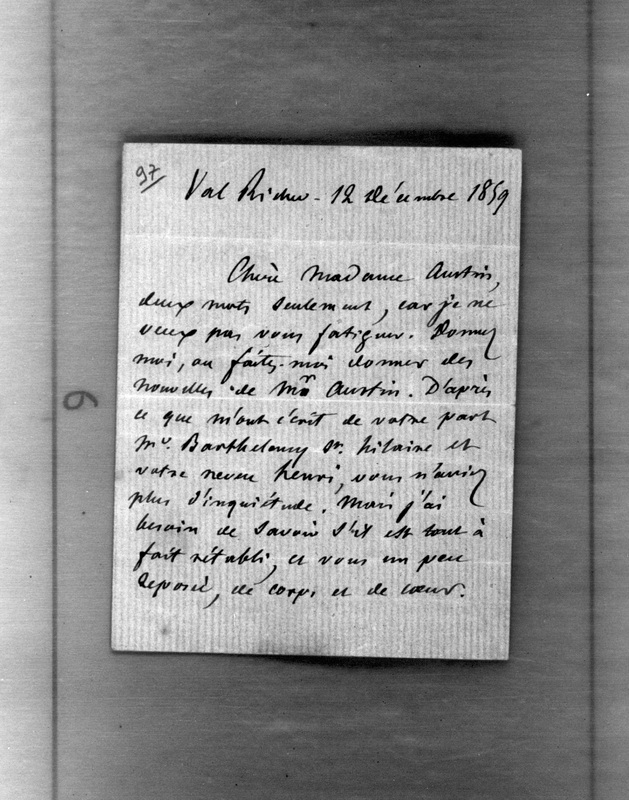 97
Val Richer - 12 Décembre 1859
Chère Madame Austin,
deux mots seulement, car je ne
veux pas vous fatiguer. Donnez
moi, ou faites-moi donner des
nouvelles de Mr Austin. D'après
ce que m'ont écrit de votre part
Mr. Barthelemy St. hilaire et
votre neveu henri, vous n'aviez
plus d'inquiétude. Mais j'ai
besoin de savoir s'il est tout à
fait rétabli, et vous un peu
reposée, de corps et de coeur.
6